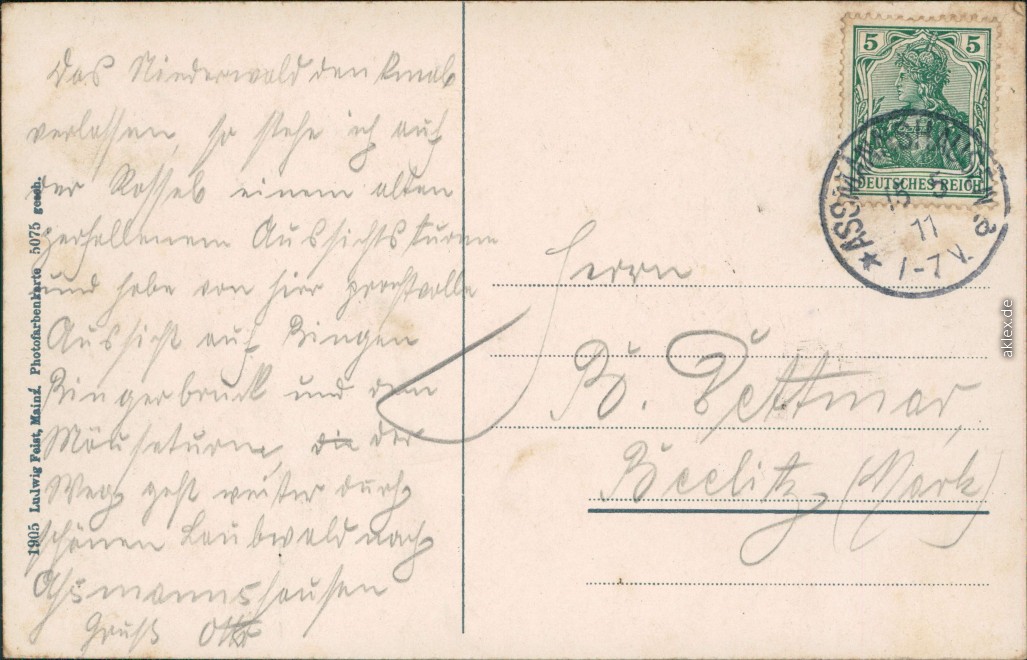 Das Niederwalddenkmal
verlassen, so stehe ich auf
der Rossel einem alten
zerfallenem Aussichtsturm
und habe von hier prachtvolle
Aussicht auf Bingen
Bingerbrück und den
Mäuseturm, die der
Weg geht weiter durch
schönen Laubwald nach
Assmannshausen
Gruß Otto
1905 Ludwig Feist, Mainz. Photofarbenkarte 5075 gesch.
5 5
DEUTSCHES REICH
★ ASSMANNSHAUSEN
15 5
11
1-7 V.
Herrn
B. Dettmar,
Beelitz (Mark)
aklex.de